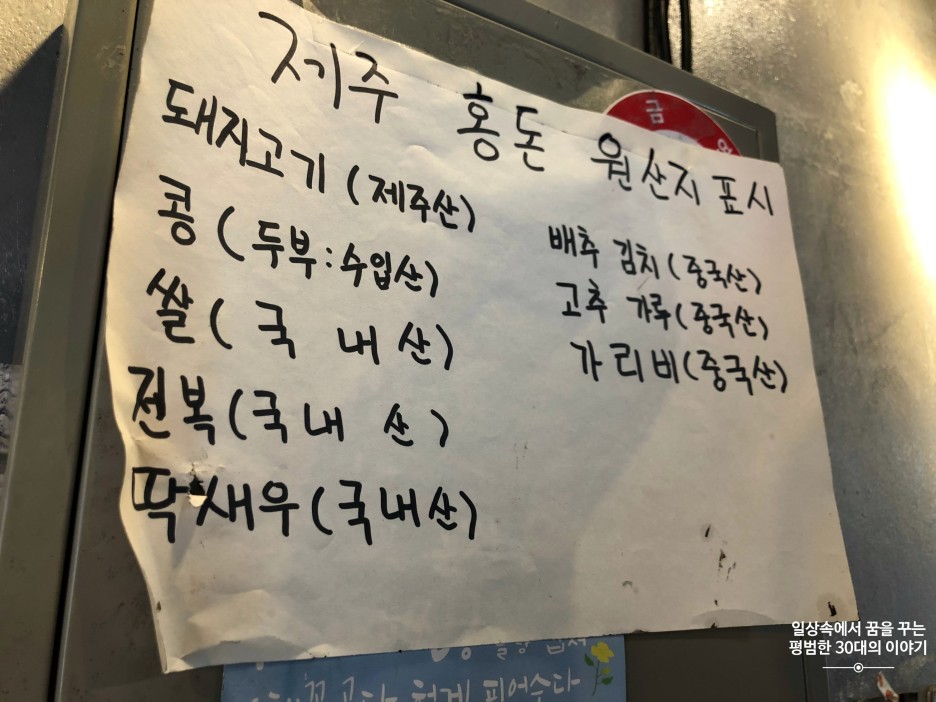 제주 홍돈 원산지 표시
돼지고기 (제주산)
콩 (두부:수입산)
쌀 (국내산)
전복 (국내산)
딱새우 (국내산)
배추 김치 (중국산)
고추 가루 (중국산)
가리비 (중국산)
금
피어수다
일상속에서 꿈을 꾸는
평범한 30대의 이야기